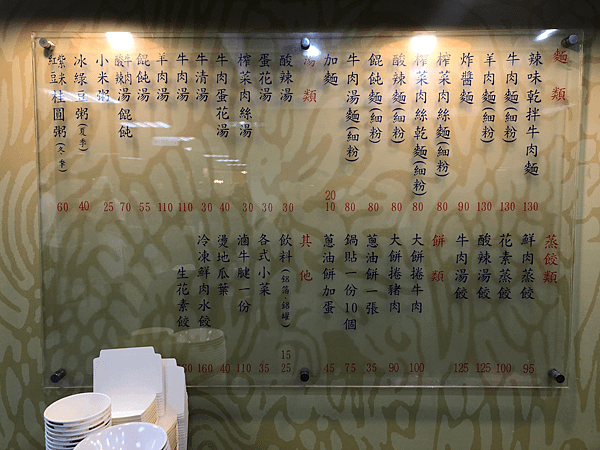 麵類
辣味乾拌牛肉麵 130
牛肉麵(細粉) 130
羊肉麵(細粉) 130
炸醬麵 90
榨菜肉絲麵(細粉) 80
榨菜肉絲乾麵(細粉) 80
酸辣麵(細粉) 80
餛飩麵(細粉) 80
牛肉湯麵(細粉) 80
加麵 20 10
湯類
酸辣湯 30
蛋花湯 30
榨菜肉絲湯 30
牛肉蛋花湯 40
牛清湯 30
牛肉湯 110
羊肉湯 110
餛飩湯 55
酸辣湯餛飩 70
小米粥 25
冰綠豆粥(夏季) 40
紫米紅豆桂圓粥(冬季) 60
蒸餃類
鮮肉蒸餃 95
花素蒸餃 100
酸辣湯餃 125
牛肉湯餃 125
餅類
大餅捲牛肉 100
大餅捲豬肉 90
蔥油餅一張 35
鍋貼一份10個 75
蔥油餅加蛋 45
其他
飲料(鋁箔、鋁罐) 15 25
各式小菜 35
滷牛腱一份 110
燙地瓜葉 40
冷凍鮮肉水餃 160
生花素餃